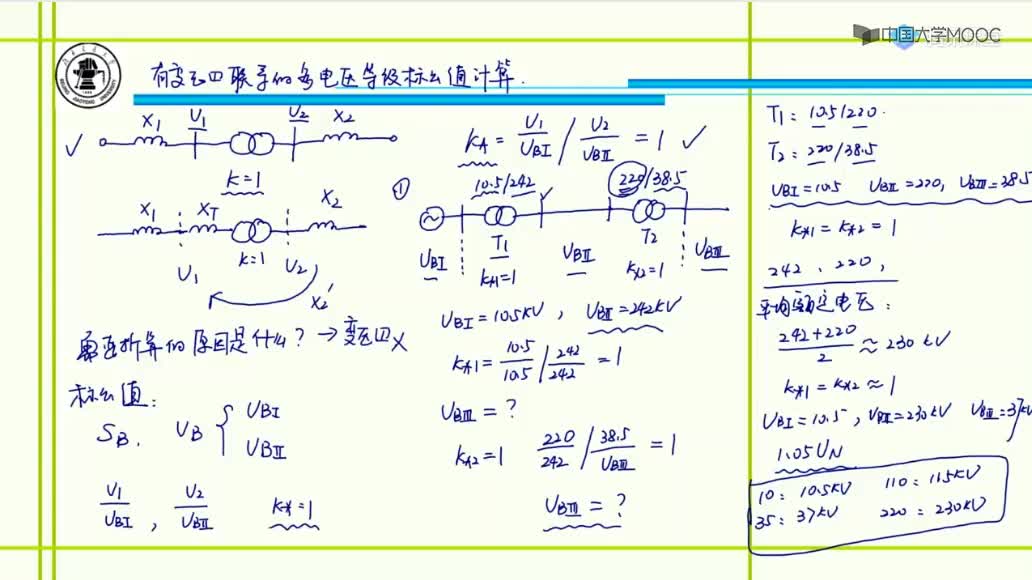 中国大学MOOC
有变压器联系的多电压等级标幺值计算.
X1 U1 U2 X2
✓
K=1
X1 XT X2
K=1
U1 U2
X2'
需要折算的原因是什么? → 变压器
标幺值:
SB. UB { UBI
UBII
U1/UBI , U2/UBII K*=1
K*= U1/UBI / U2/UBII = 1 ✓
① 10.5/242 220/38.5
~
T1 T2
UBI UBII UBIII
K*1=1 K*2=1
UBI=10.5KV , UBII=242KV
K*1= 10.5/10.5 / 242/242 = 1
UBIII = ?
K*2=1 220/242 / 38.5/UBIII = 1
UBIII = ?
T1: 10.5/220.
T2: 220/38.5
UBI=10.5 UBII=220, UBIII=38.5
K*1=K*2=1
242、220,
平均额定电压:
242+220/2 ≈ 230 kV
K*1=K*2≈1
UBI=10.5, UBII=230kV UBIII=37kV
1.05UN
10: 10.5KV 110: 115KV
35: 37KV 220: 230KV